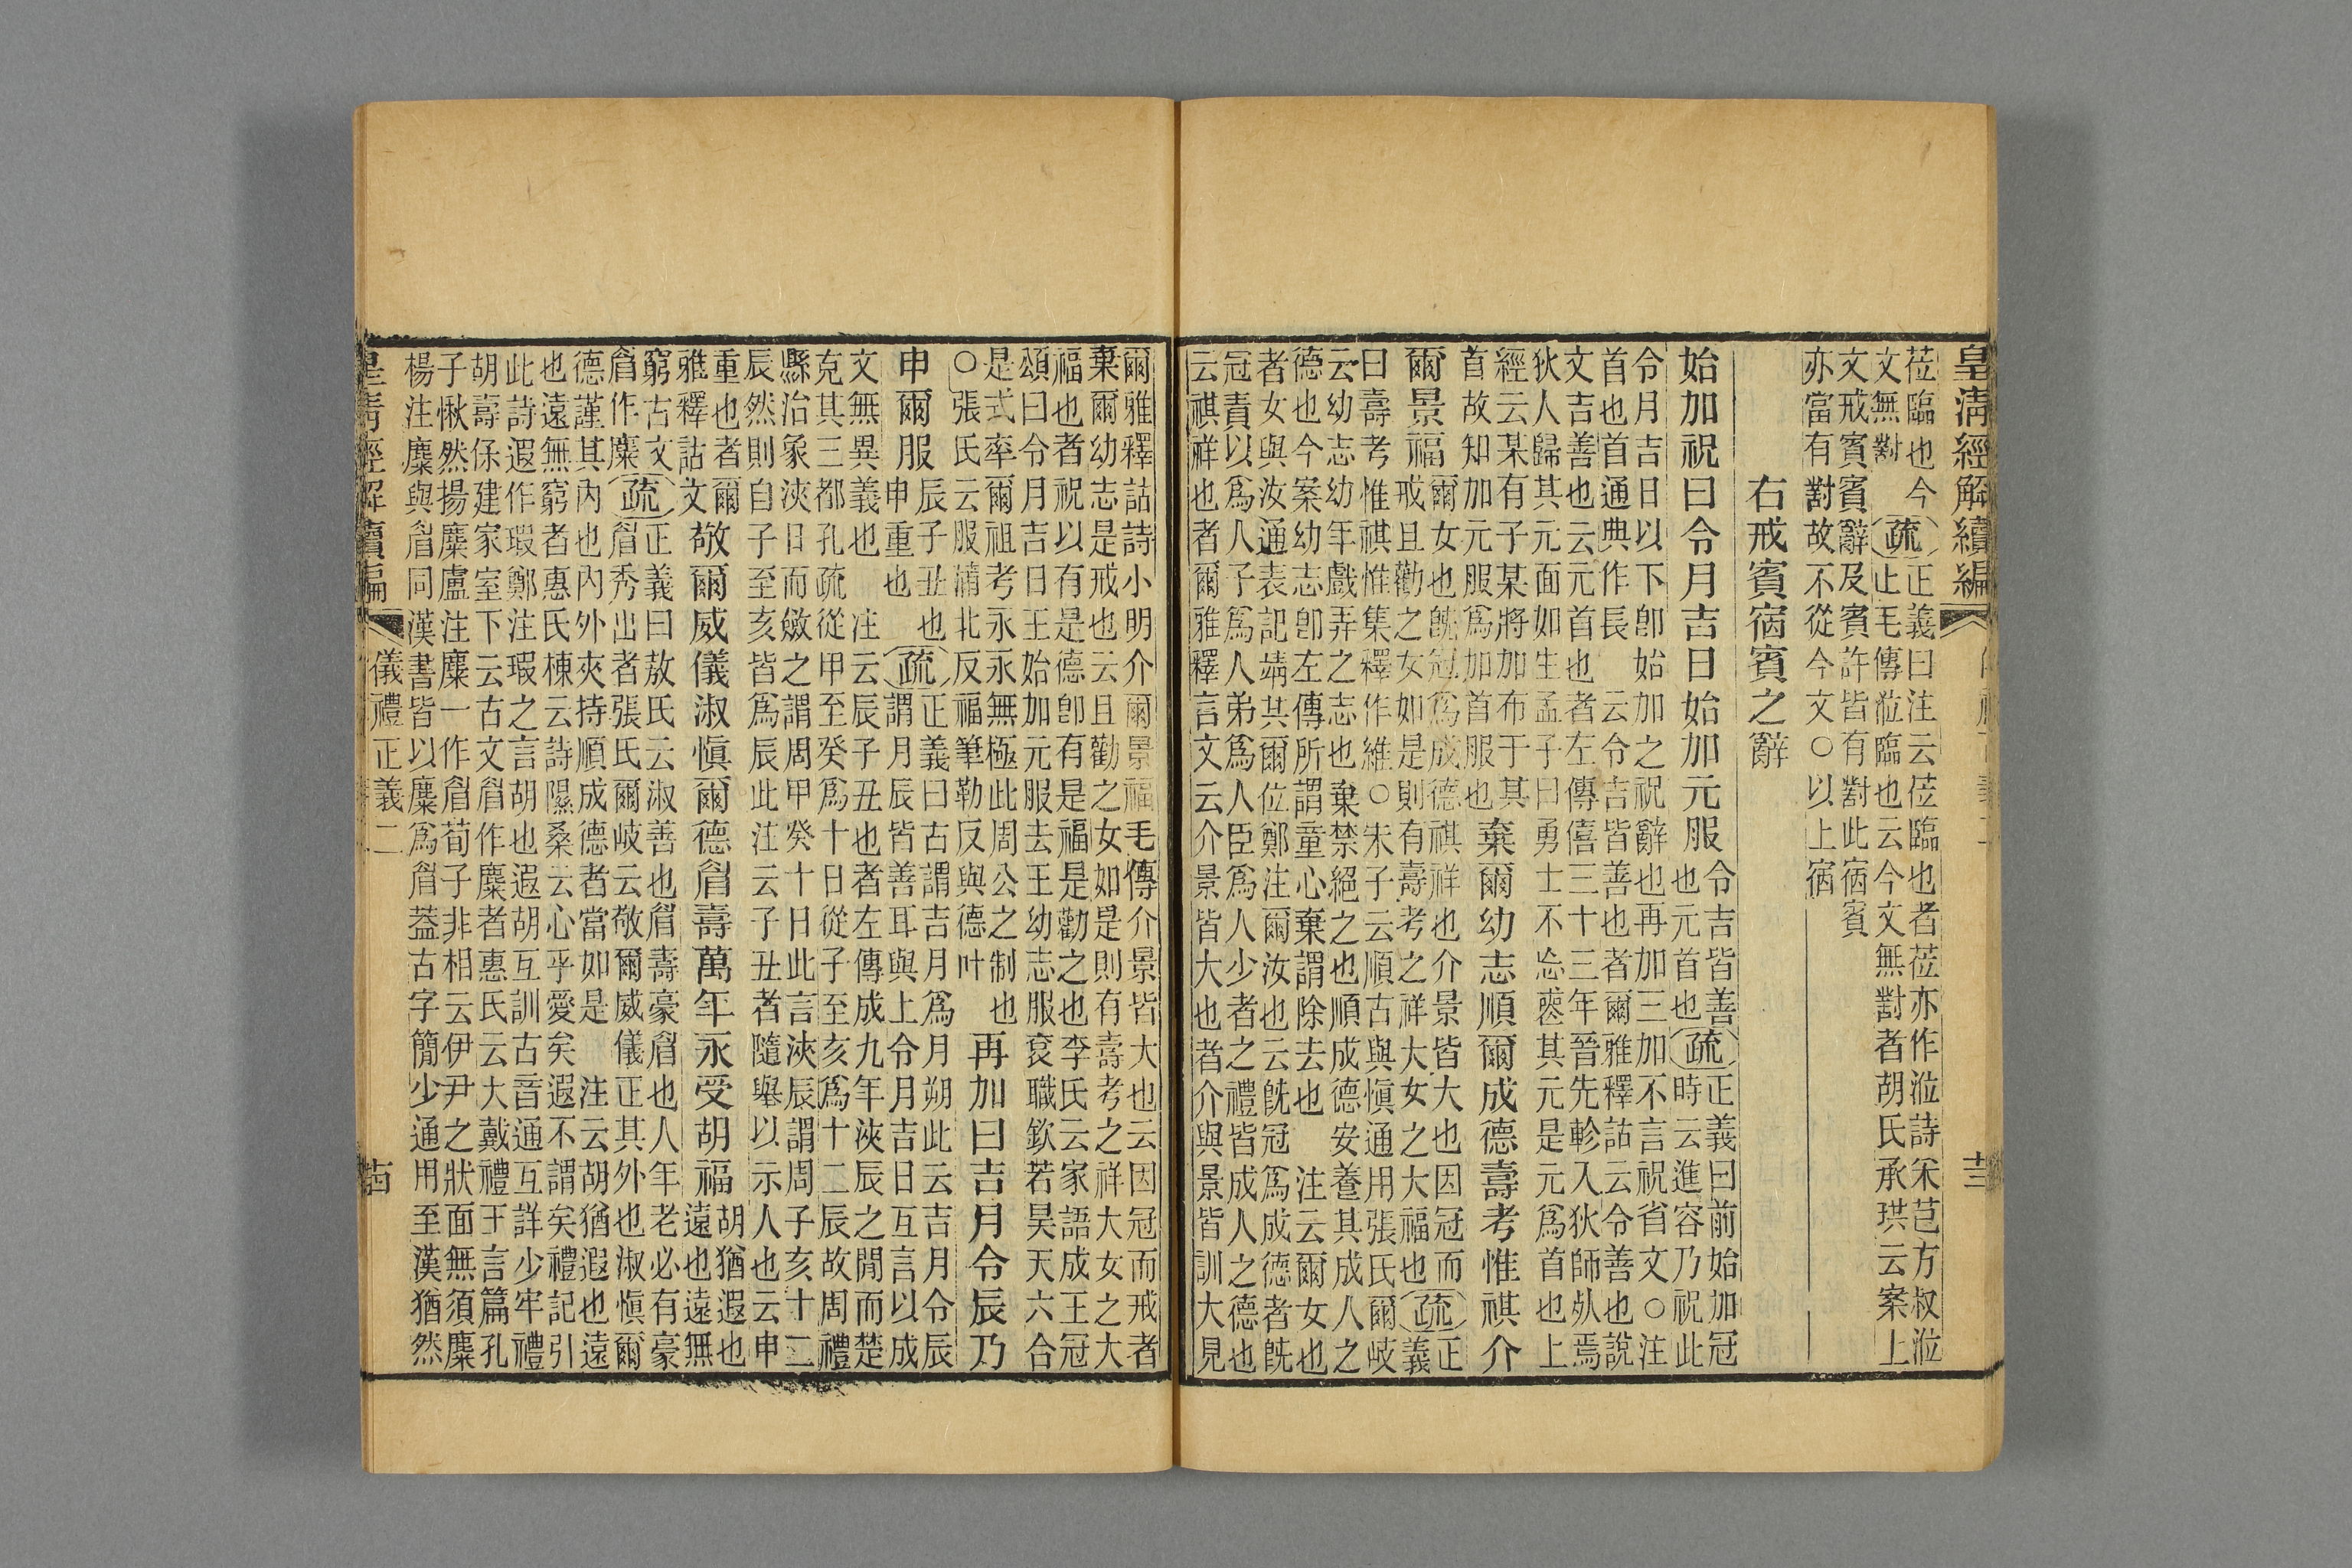 皇清經解續編
莅臨也今正義曰注云莅臨也者莅亦作涖詩采芑方叔涖
文無對疏止毛傳涖臨也云今文無對者胡氏承珙云案上
文戒賓賓辭及賓許皆有對此宿賓
亦當有對故不從今文○以上宿
右戒賓宿賓之辭
始加祝曰令月吉日始加元服
令吉皆善正義曰前始加冠
也元首也疏時云進容乃祝此
令月吉日以下卽始加之祝辭也再加三加不言祝省文○注
首也首通典作長 云令吉皆善也者爾雅釋詁云令善也說
文吉善也云元首也者左傳僖三十三年晉先軫入狄師死焉
狄人歸其元面如生孟子曰勇士不忘喪其元是元爲首也上
經云某有子某將加布于其
首故知加元服爲加首服也
棄爾幼志順爾成德壽考惟祺介
爾景福
爾女也旣冠爲成德祺祥也介景皆大也因冠而正
戒且勸之女如是則有壽考之祥大女之大福也疏義
曰壽考惟祺惟集釋作維○朱子云順古與愼通用張氏爾岐
云幼志幼年戲弄之志也棄禁絕之也順成德安養其成人之
德也今案幼志卽左傳所謂童心棄謂除去也 注云爾女也
者女與汝通表記靖共爾位鄭注爾汝也云旣冠爲成德者旣
冠責以爲人子爲人弟爲人臣爲人少者之禮皆成人之德也
云祺祥也者爾雅釋言文云介景皆大也者介與景皆訓大見
爾雅釋詁詩小明介爾景福毛傳介景皆大也云因冠而戒者
棄爾幼志是戒也云且勸之女如是則有壽考之祥大女之大
福也者祝以有是德卽有是福是勸之也李氏云家語成王冠
頌曰令月吉日王始加元服去王幼志服袞職欽若昊天六合
是式率爾祖考永永無極此周公之制也
○張氏云服蒲北反福筆勒反與德叶
再加曰吉月令辰乃
申爾服
辰子丑也正義曰古謂吉月爲月朔此云吉月令辰
申重也疏謂月辰皆善耳與上令月吉日互言以成
文無異義也 注云辰子丑也者左傳成九年浹辰之閒而楚
克其三都孔疏從甲至癸爲十日從子至亥爲十二辰故周禮
縣治象浹日而斂之謂周甲癸十日此言浹辰謂周子亥十二
辰然則自子至亥皆爲辰此注云子丑者隨舉以示人也云申
重也者爾
雅釋詁文
敬爾威儀淑愼爾德眉壽萬年永受胡福
胡猶遐也
遠也遠無
窮古文正義曰敖氏云淑善也眉壽豪眉也人年老必有豪
眉作麋疏眉秀出者張氏爾岐云敬爾威儀正其外也淑愼爾
德謹其內也內外夾持順成德者當如是 注云胡猶遐也遠
也遠無窮者惠氏棟云詩隰桑云心乎愛矣遐不謂矣禮記引
此詩遐作瑕鄭注瑕之言胡也遐胡互訓古音通互詳少牢禮
胡壽保建家室下云古文眉作麋者惠氏云大戴禮王言篇孔
子愀然揚麋盧注麋一作眉荀子非相云伊尹之狀面無須麋
楊注麋與眉同漢書皆以麋爲眉葢古字簡少通用至漢猶然
皇清經解續編 儀禮正義二 古